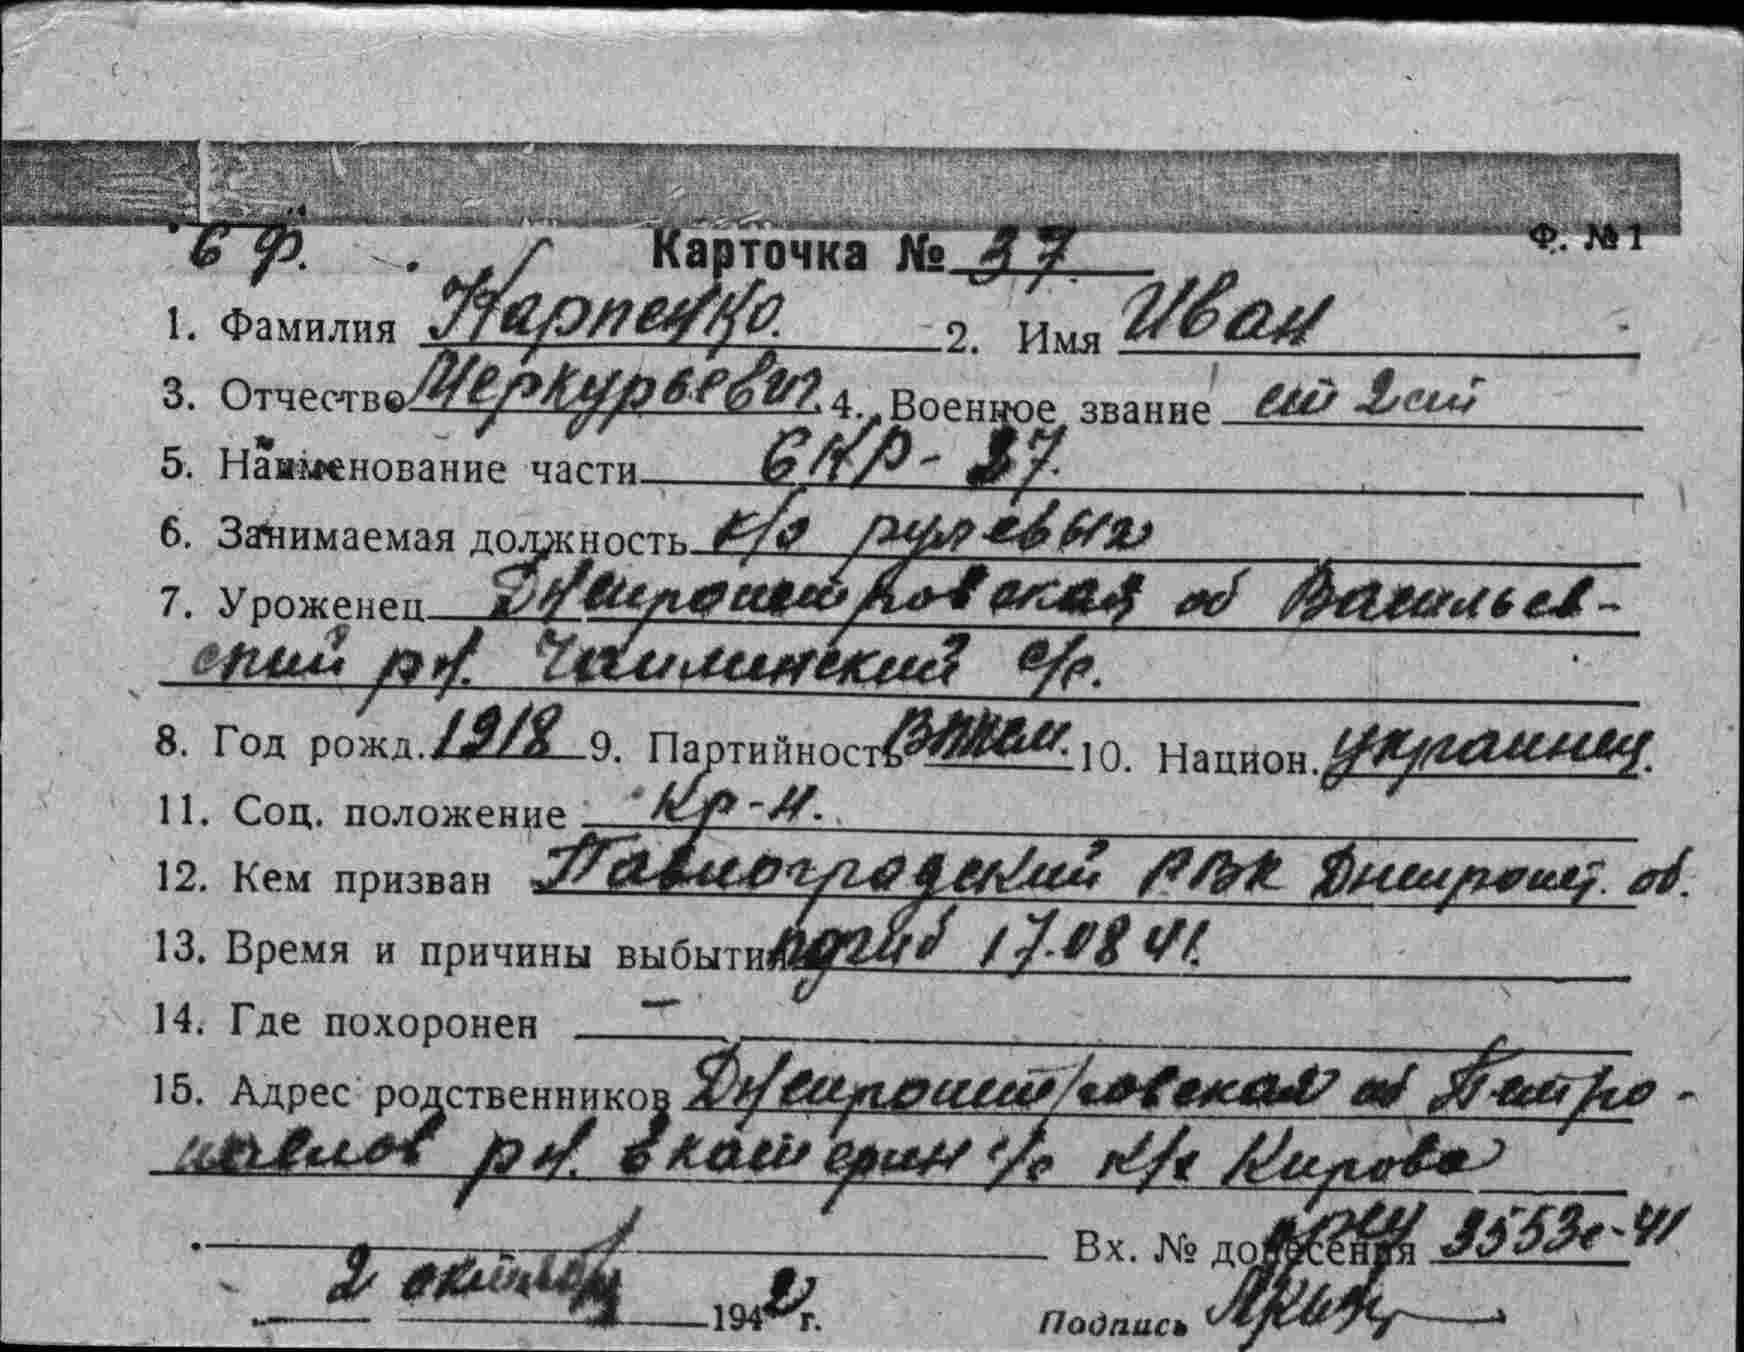 6 Ф. Карточка № 37 Ф. № 1
1. Фамилия Карпенко. 2. Имя Иван
3. Отчество Меркурьевич 4. Военное звание ст 2 ст
5. Наименование части СКР-27.
6. Занимаемая должность к/о рулевых
7. Уроженец Днепропетровская об Васильев-
ский р-н. с/с.
8. Год рожд. 1918 9. Партийность 10. Национ. украинец.
11. Соц. положение Кр-н.
12. Кем призван Павлоградский РВК Днепропет. об.
13. Время и причины выбытия погиб 17.08 41.
14. Где похоронен —
15. Адрес родственников Днепропетровская об Петро-
павлов р-н. Екатерин с/с к/х Кирова
Вх. № донесения 3553с-41
2 октября 1942 г. Подпись